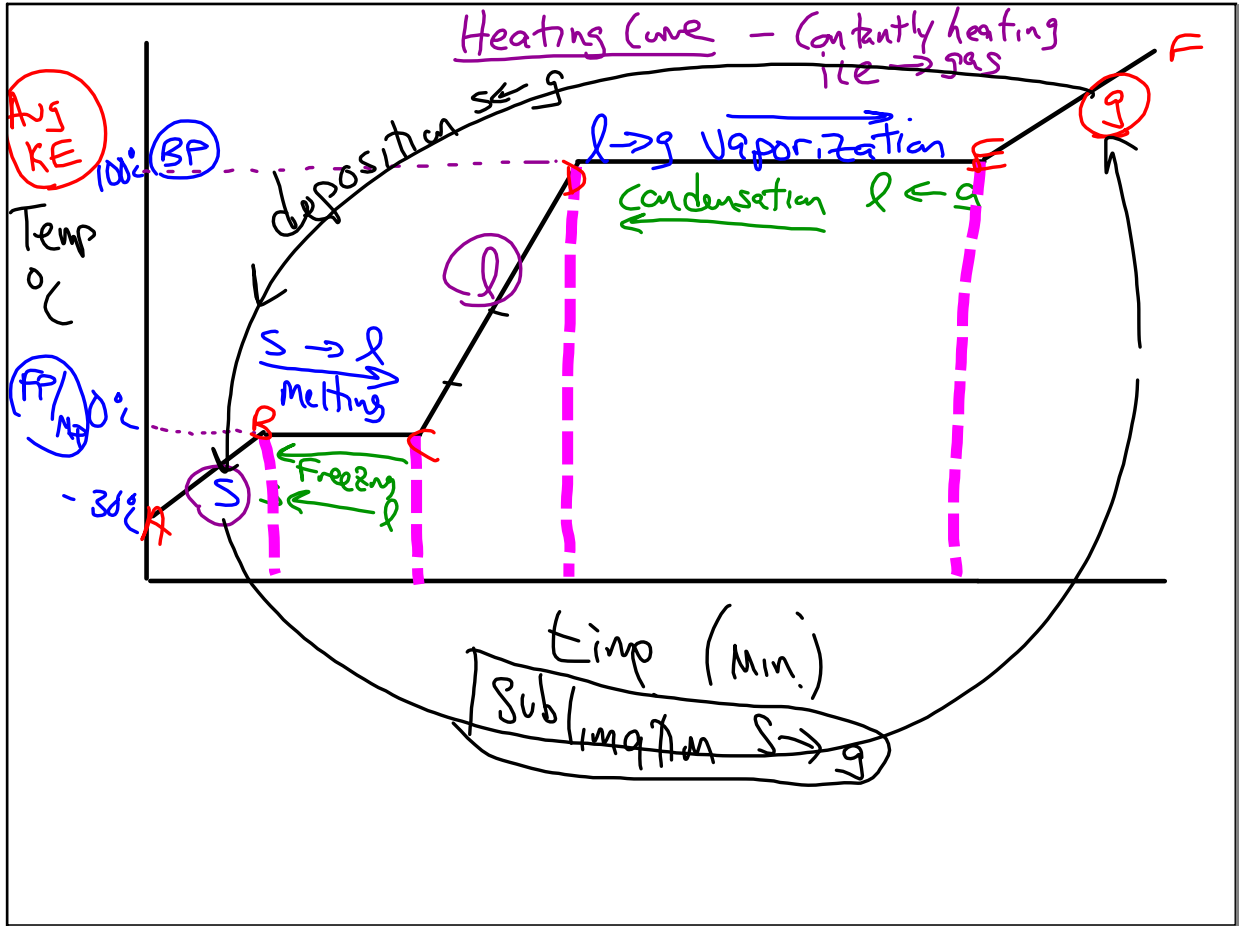 Heating Curve - Contantly heating
ice → gas
F
Avg
KE
BP
100°c
g
deposition s ← g
l → g vaporization
D
E
Condensation l ← g
Temp
°C
l
S → l
Melting
FP/MP
0°c
B
C
Freezng
S
l
-30°c
A
time (Min.)
Sublimation S → g